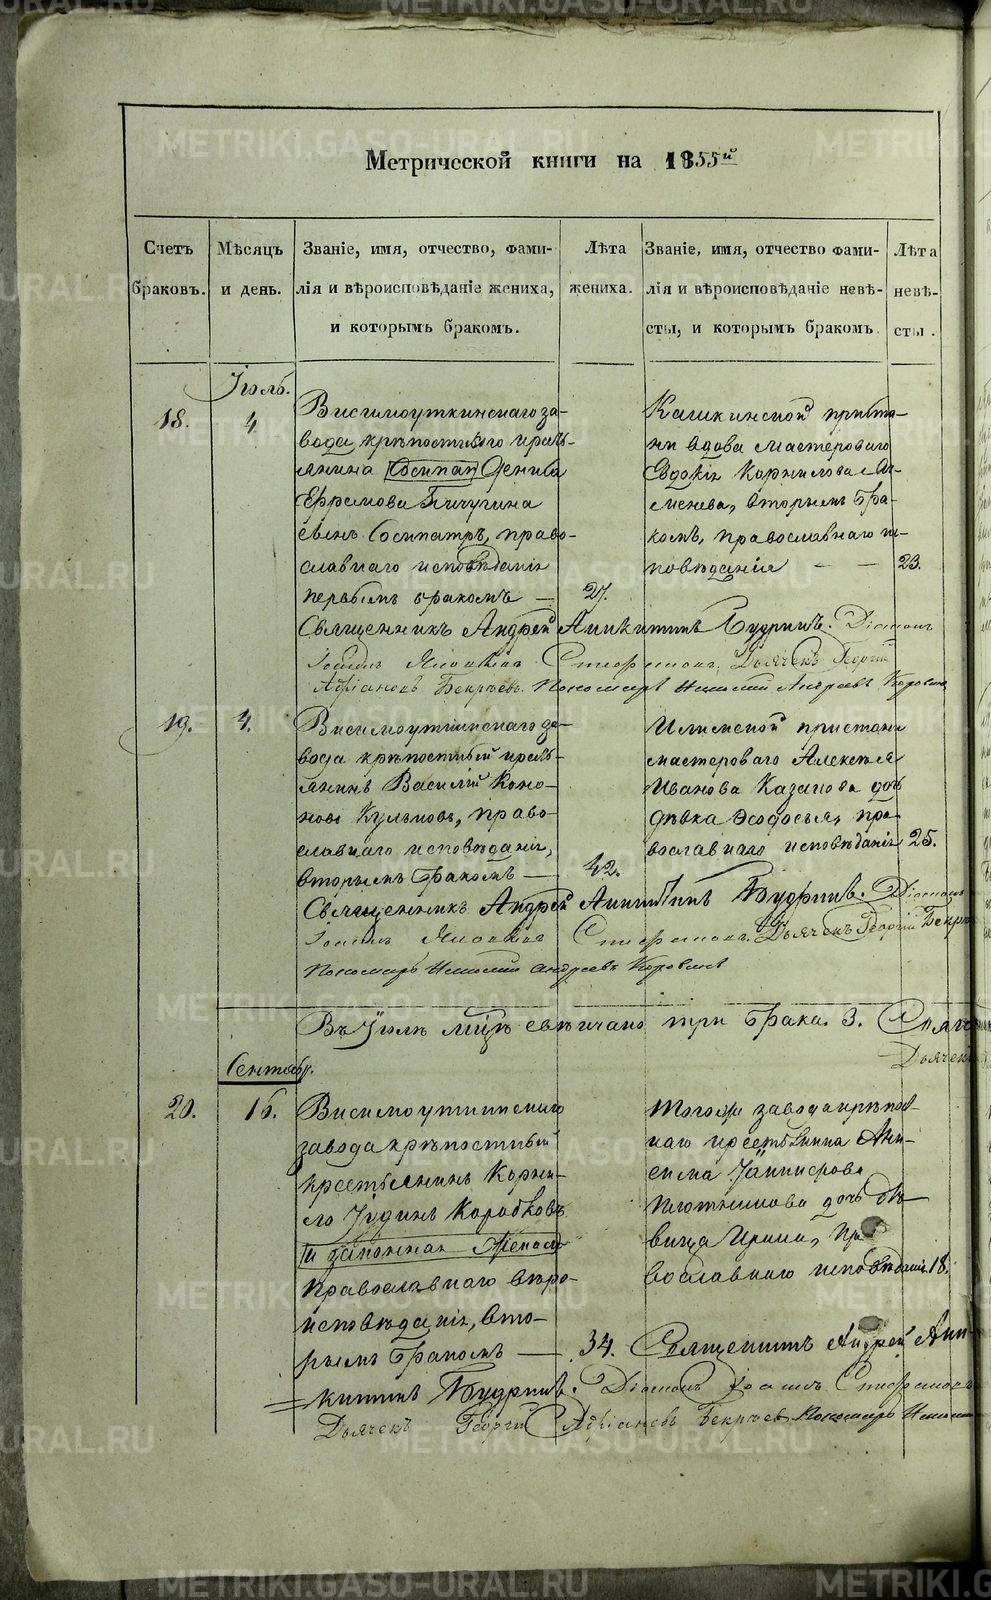 Метрической книги на 1855й
Счетъ браковъ.
Мѣсяцъ и день.
Званіе, имя, отчество, фами-
лія и вѣроисповѣданіе жениха,
и которымъ бракомъ.
Лѣта жениха.
Званіе, имя, отчество фами-
лія и вѣроисповѣданіе невѣ-
сты, и которымъ бракомъ
Лѣта невѣ-
сты.
Іюль.
18.
4
Висимоуткинскаго за-
вода крѣпостнаго кресть-
янина
Ефремова Пичугина
сынъ Сосипатръ, право-
славнаго исповѣданія
первымъ бракомъ —
27.
Кашкинской приста-
ни вдова мастероваго
Евдокія Корнилова
вторымъ бра-
комъ, православнаго ис-
повѣданія — —
23.
Священникъ Андрей Аникитинъ Будринъ. Діаконъ
Іоаннъ Яковлевъ Стефановъ. Дьячекъ Георгій
Адріановъ Бекрѣевъ. Пономарь Андреевъ Коровинъ
19.
4.
Висимоуткинскаго за-
вода крѣпостный кресть-
янинъ Василій Коно-
новъ право-
славнаго исповѣданія,
вторымъ бракомъ —
42.
Илимской пристани
мастероваго Алексѣя
Иванова Казакова дочь
дѣвка Ѳеодосья, пра-
вославнаго исповѣданія
25.
Священникъ Андрей Аникитинъ Будринъ. Діаконъ
Іоаннъ Яковлевъ Стефановъ. Дьячекъ Георгій
Пономарь Андреевъ Коровинъ
Въ Іюлѣ мцѣ свѣнчано три брака. 3.
Дьячекъ
Сентябр.
20.
16.
Висимоуткинскаго
завода крѣпостный
крестьянинъ Корни-
ло Іудинъ Коробковъ
Православнаго вѣро-
исповѣданія, вто-
рымъ бракомъ —
34.
Тогоже завода крѣпост-
наго крестьянина Ани-
сима
Плотникова дочь дѣ-
вица Ирина, Пра-
вославнаго исповѣданія
18.
Священникъ Андрей Ани-
китинъ Будринъ. Діаконъ Іоаннъ Стефановъ
Дьячекъ Георгій Адріановъ Бекрѣевъ. Пономарь
METRIKI.GASO-URAL.RU